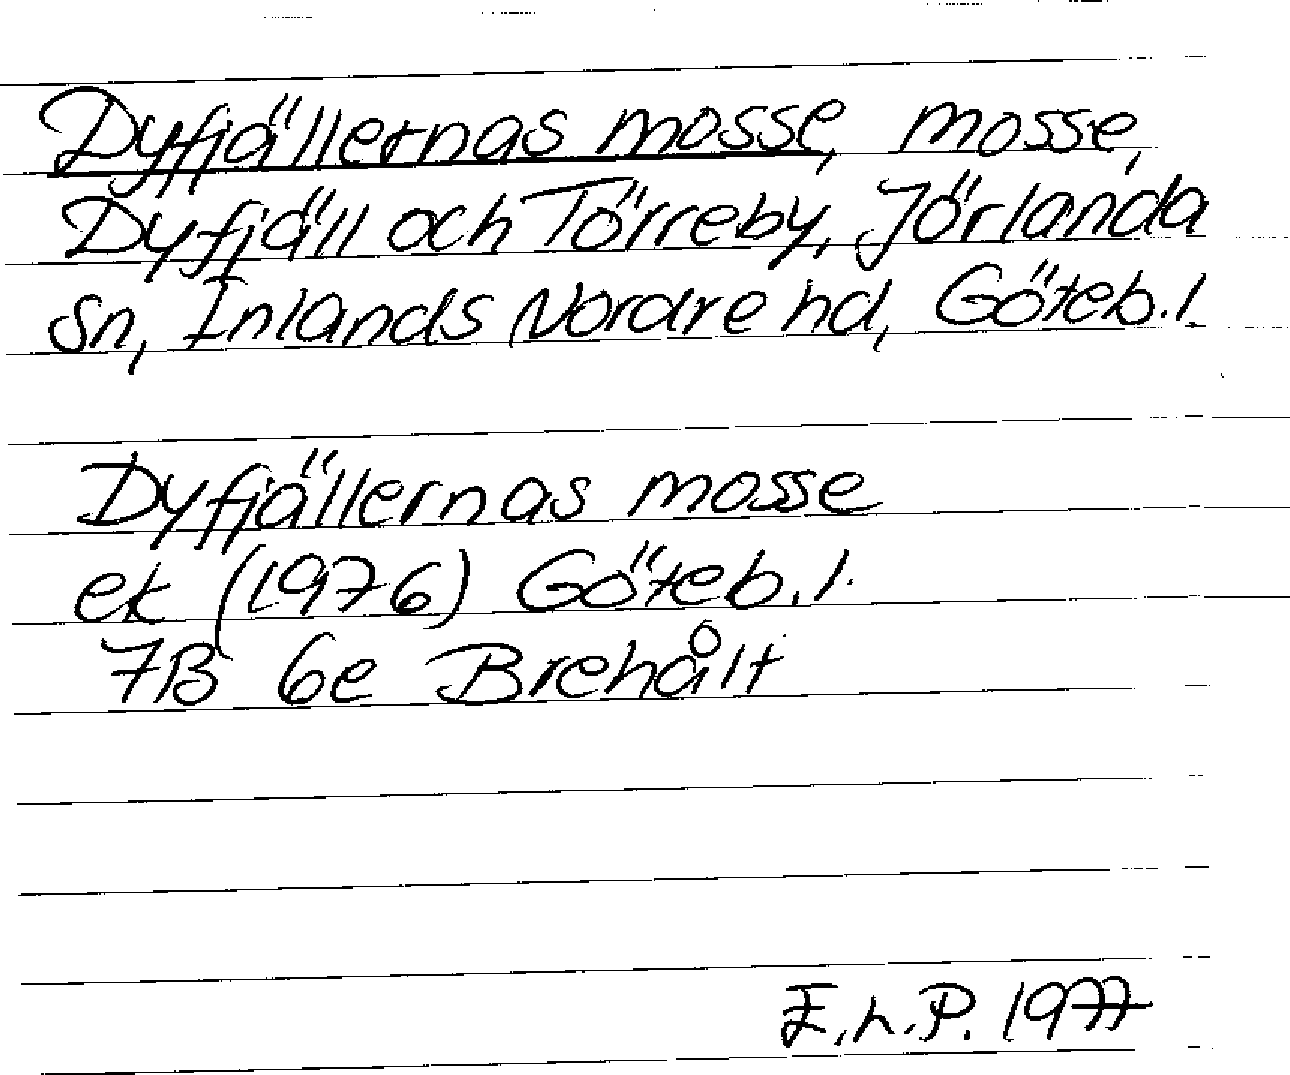 Dyfjällernas mosse, mosse,
Dyfjäll och Törreby, Jörlanda
sn, Inlands Nordre hd, Göteb. l.
Dyfjällernas mosse
ek (1976) Göteb. l.
7B 6e Brehålt
E.h.P. 1977